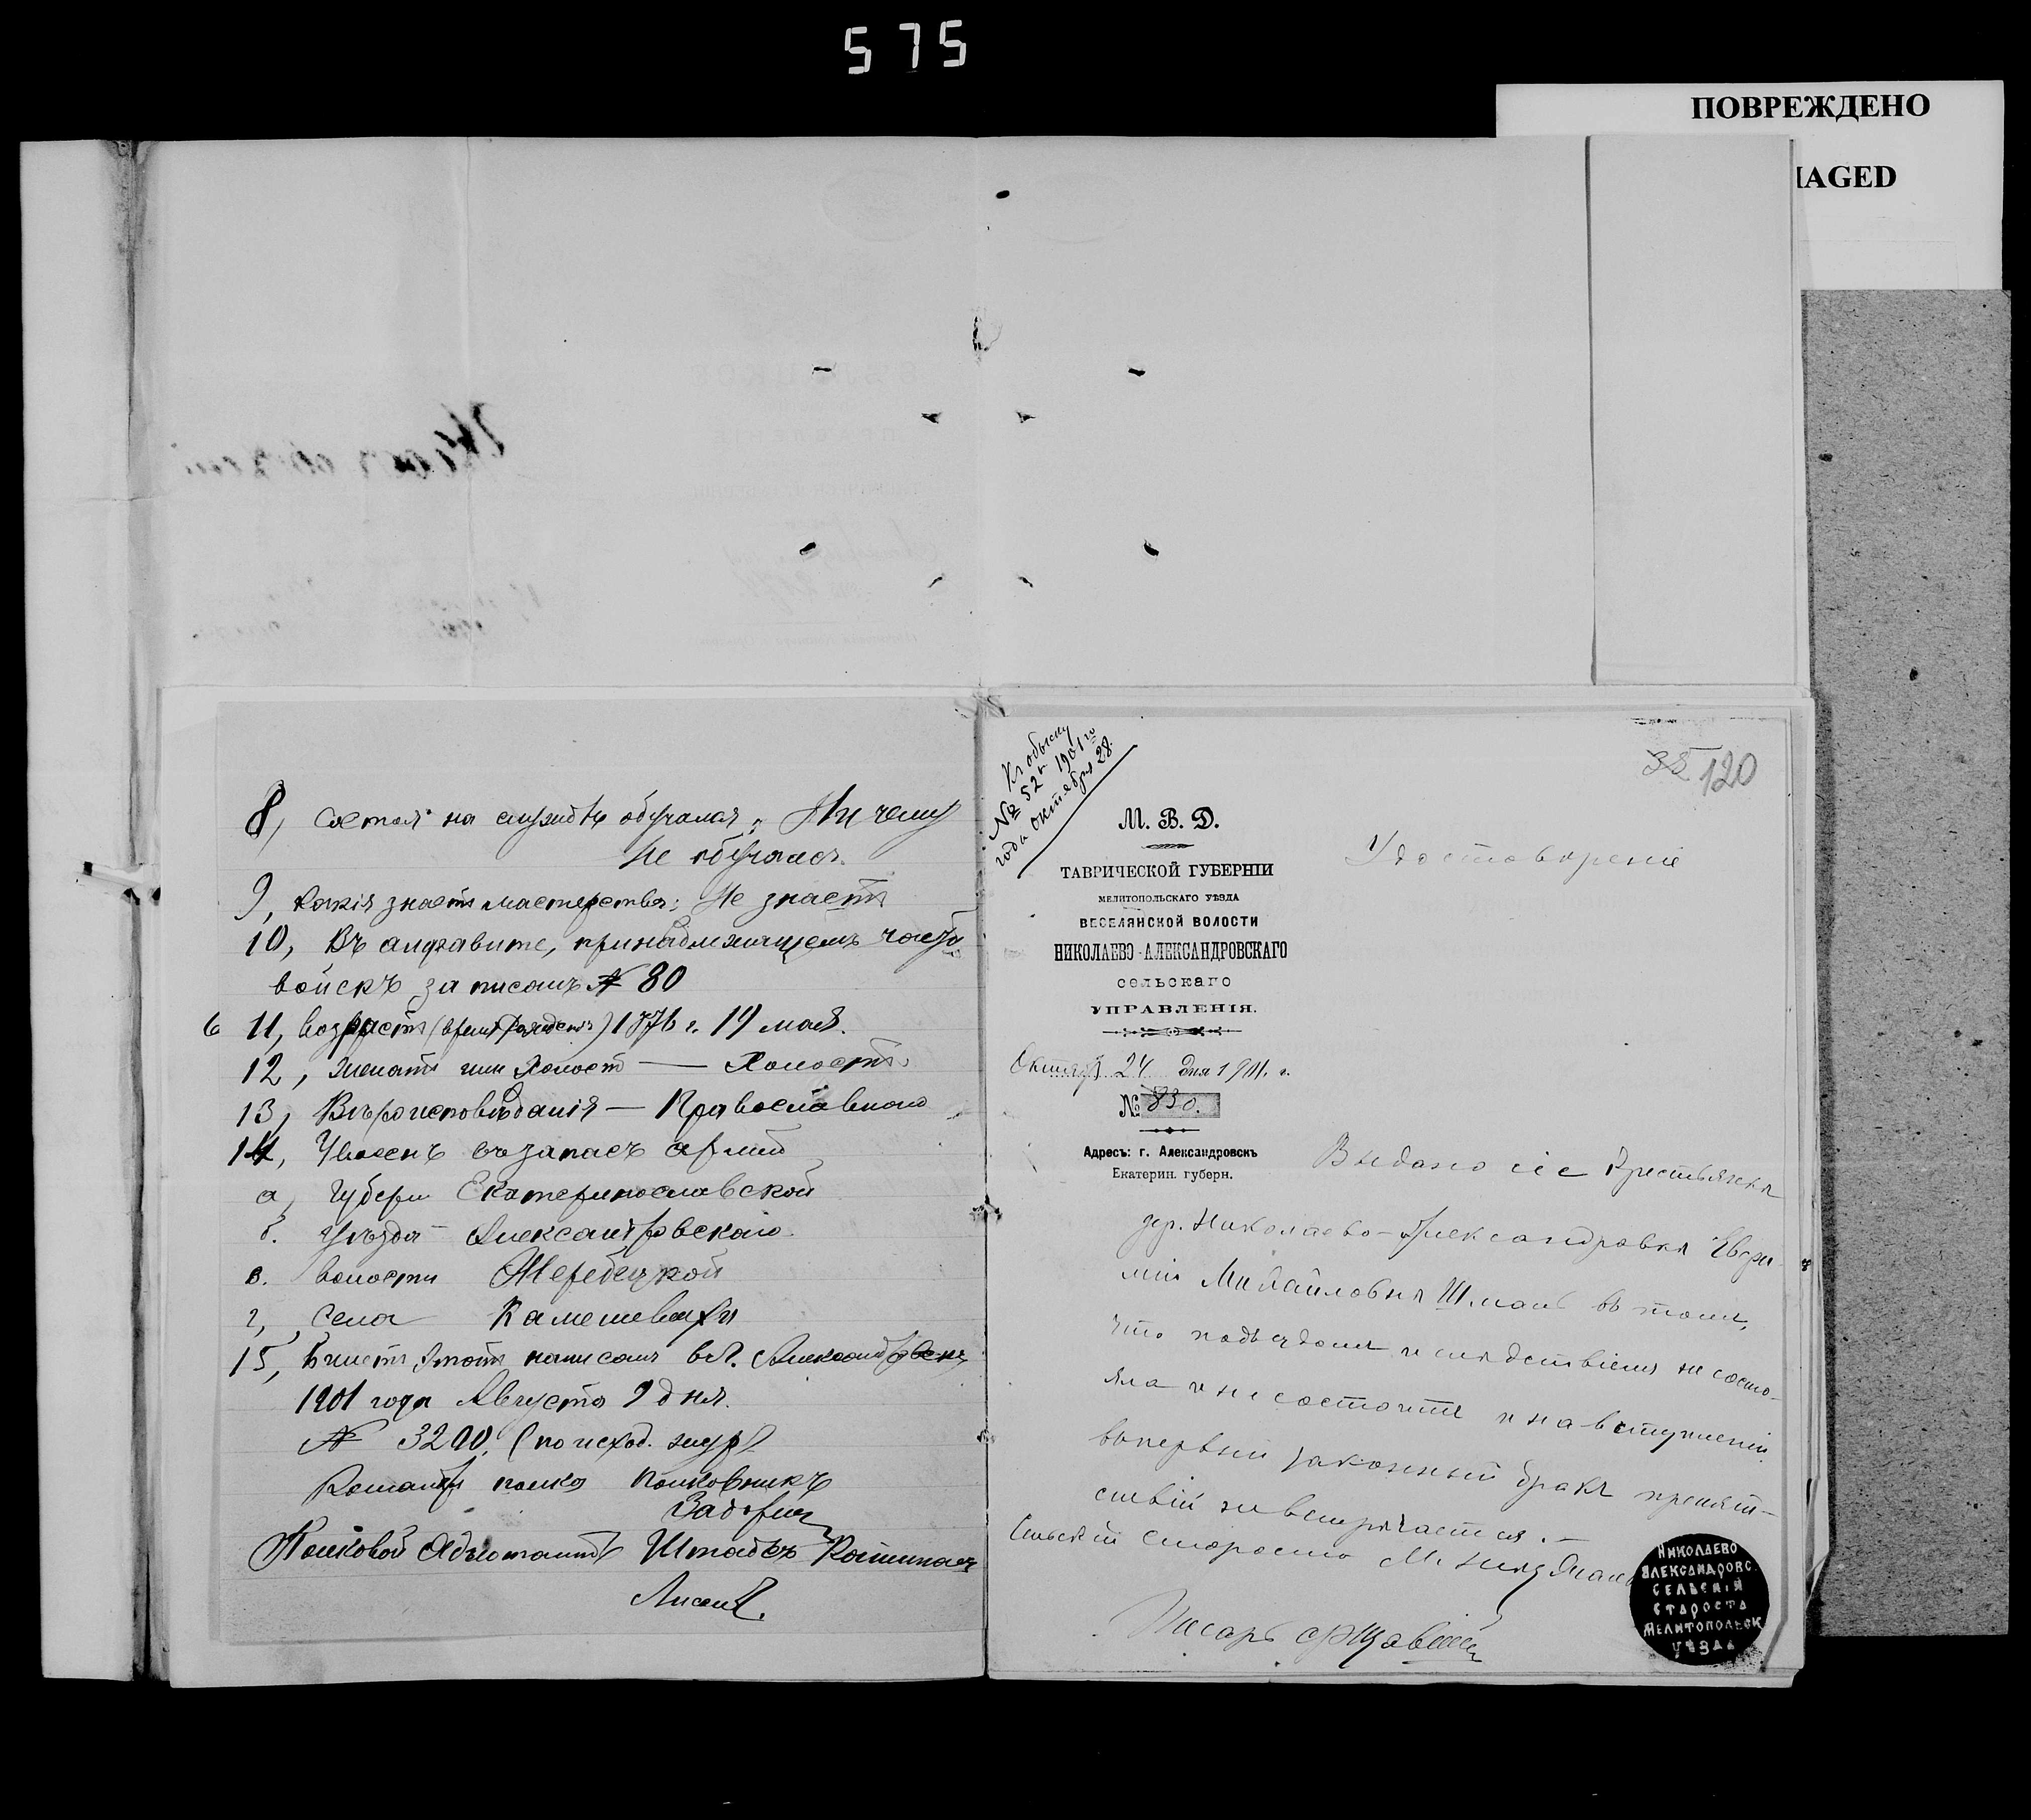 575
ПОВРЕЖДЕНО
MAGED
8, Состоя на службѣ обучался: Ни чему
Не обучался.
9, какія знаетъ мастерства: Не знаетъ
10, Въ алфавите, принадлежащемъ части
войскъ записанъ № 80
6 11, возрастъ (время рожденія) 1876 г. 19 мая.
12, женатъ или холостъ — Холостъ
13, Вѣроисповѣданія — Православнаго
14, Уволенъ въ запасъ арміи
а, губерн Екатеринославской
б. уѣзда Александровскаго
в. волости Жеребецкой
г, села Камышевахи
15, Листъ этотъ написанъ въ г. Александровскѣ
1901 года Августа 9 дня.
№ 3200, (по исход. журн
Командр полка Полковникъ
Полковой Адъютантъ Штабсъ Капитанъ
Къ обыску
№ 52й 1901го
года октября 28.
35 120
М. В. Д.
ТАВРИЧЕСКОЙ ГУБЕРНІИ
МЕЛИТОПОЛЬСКАГО УѢЗДА
ВЕСЕЛЯНСКОЙ ВОЛОСТИ
НИКОЛАЕВО-АЛЕКСАНДРОВСКАГО
СЕЛЬСКАГО
УПРАВЛЕНІЯ.
Октября 24 дня 1901 г.
№ 830.
Адресъ: г. Александровскъ
Екатерин. губерн.
Удостоверение
Выдано сіе Крестьянки
дер. Николаево-Александровки Евфи-
міи Михайловня въ томъ,
что подъ судомъ и следствіемъ не состо-
яла и не состоитъ и на вступленіи
въ первый законный бракъ препят-
ствій не встречается. —
Сельскій Староста М.
Писарь
НИКОЛАЕВО
АЛЕКСАНДРОВС.
СЕЛЬСКІЙ
СТАРОСТА
МЕЛИТОПОЛЬСК
УѢЗДА